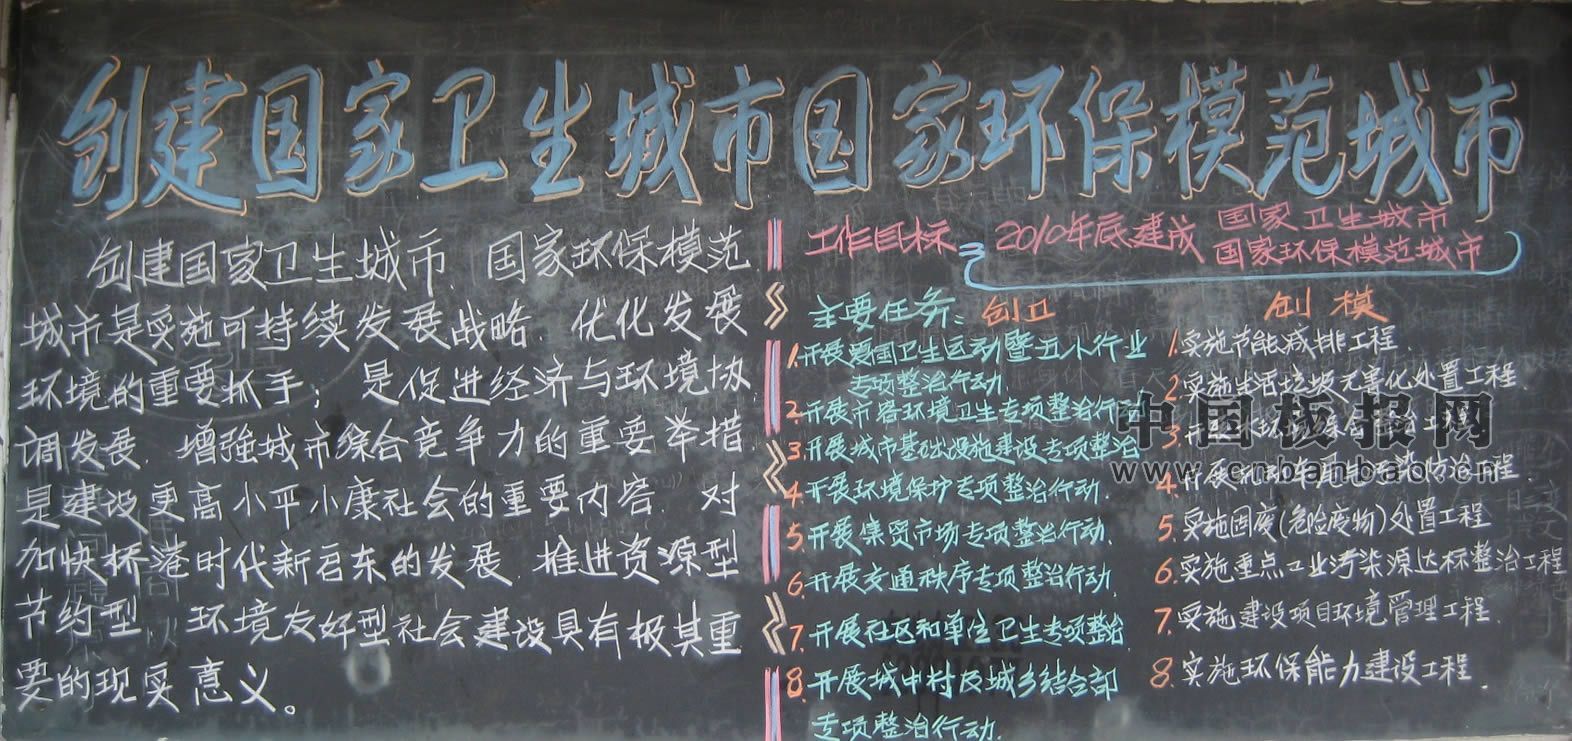 创建国家卫生城市国家环保模范城市
创建国家卫生城市、国家环保模范
城市是实施可持续发展战略、优化发展
环境的重要抓手；是促进经济与环境协
调发展、增强城市综合竞争力的重要举措
是建设更高小平小康社会的重要内容、对
加快桥港时代新启东的发展、推进资源型
节约型、环境友好型社会建设具有极其重
要的现实意义。
工作目标 2010年底建成 国家卫生城市
国家环保模范城市
主要任务：创卫
1.开展爱国卫生运动暨五小行业
专项整治行动.
2.开展市容环境卫生专项整治行动
3.开展城市基础设施建设专项整治
4.开展环境保护专项整治行动.
5.开展集贸市场专项整治行动.
6.开展交通秩序专项整治行动.
7.开展社区和单位卫生专项整治
8.开展城中村及城乡结合部
专项整治行动.
创模
1.实施节能减排工程
2.实施生活垃圾无害化处置工程.
3.开展水环境综合整治工程
4.开展机动车尾气污染防治工程.
5.实施固废(危险废物)处置工程
6.实施重点工业污染源达标整治工程
7.实施建设项目环境管理工程.
8.实施环保能力建设工程.
中国板报网
www.cnbanbao.cn